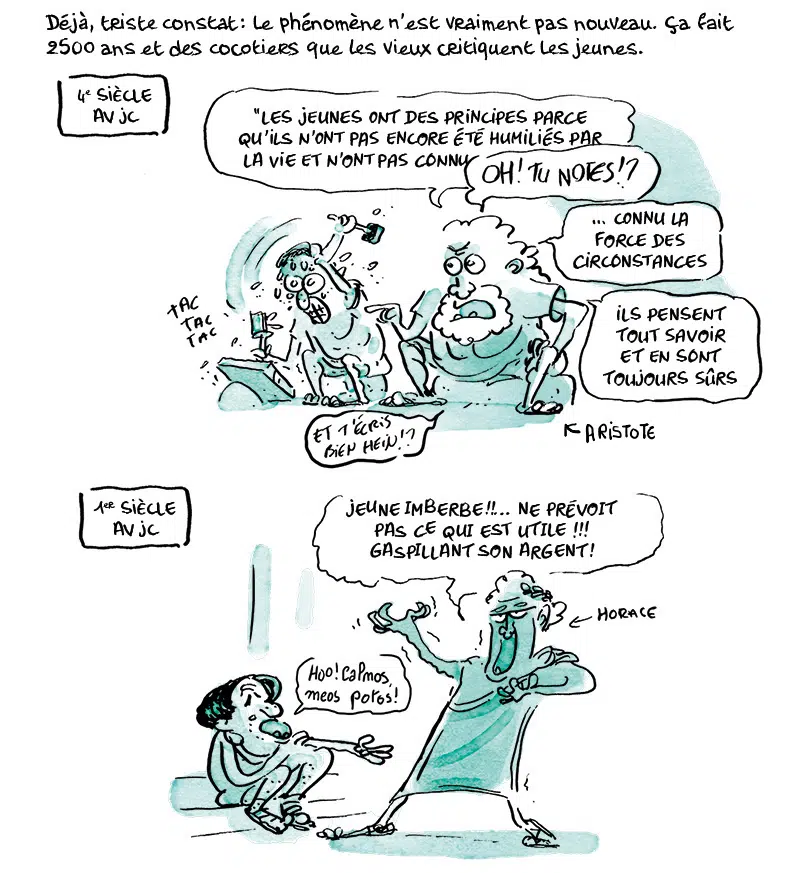 Déjà, triste constat : Le phénomène n'est vraiment pas nouveau. Ça fait
2500 ans et des cocotiers que les vieux critiquent les jeunes.
4e SIÈCLE
AV JC
"LES JEUNES ONT DES PRINCIPES PARCE
QU'ILS N'ONT PAS ENCORE ÉTÉ HUMILIÉS PAR
LA VIE ET N'ONT PAS CONNU
OH! TU NOTES!?
... CONNU LA
FORCE DES
CIRCONSTANCES
TAC
TAC
TAC
ILS PENSENT
TOUT SAVOIR
ET EN SONT
TOUJOURS SÛRS
ET T'ÉCRIS
BIEN HEIN!?
ARISTOTE
1er SIÈCLE
AV JC
JEUNE IMBERBE!!... NE PRÉVOIT
PAS CE QUI EST UTILE !!!
GASPILLANT SON ARGENT!
HORACE
Hoo! Calmos,
meos potos!